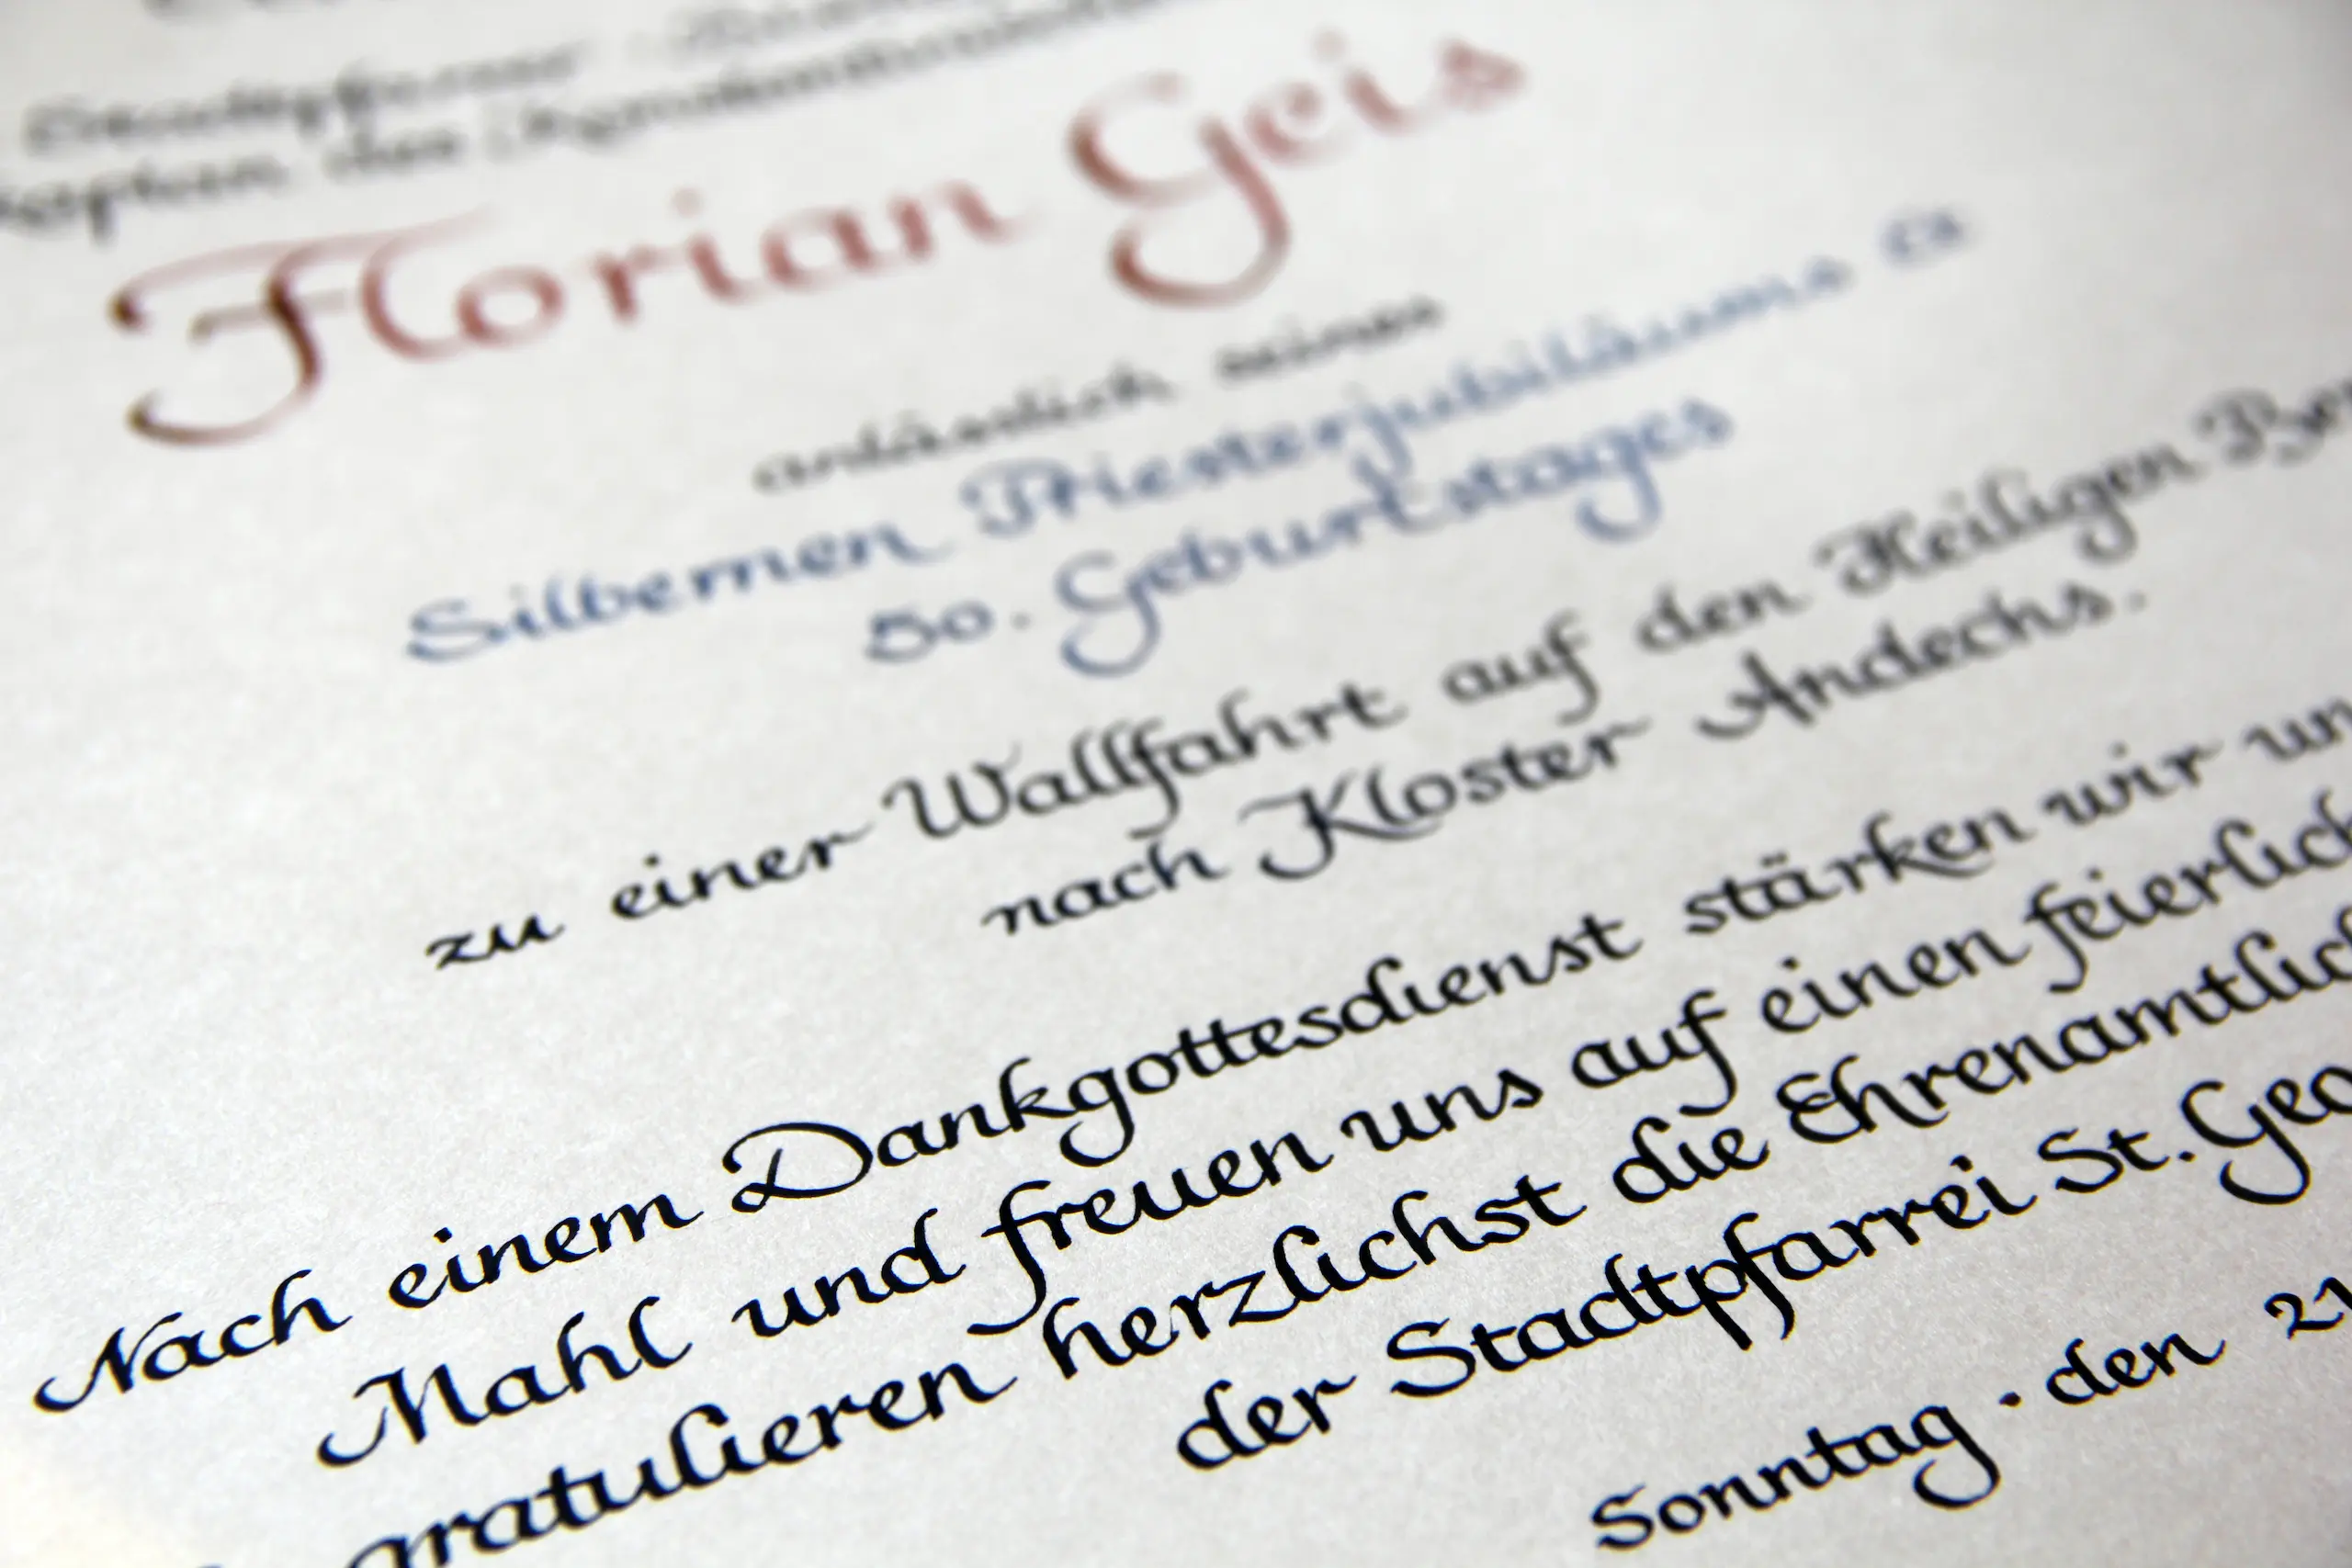 Stadtpfarrer
Kaplan des
Florian Geis
anlässlich seines
Silbernen Priesterjubiläums &
50. Geburtstages
zu einer Wallfahrt auf den Heiligen Ber
nach Kloster Andechs.
Nach einem Dankgottesdienst stärken wir un
Mahl und freuen uns auf einen feierlich
gratulieren herzlichst die Ehrenamtlich
der Stadtpfarrei St. Geo
Sonntag · den 21